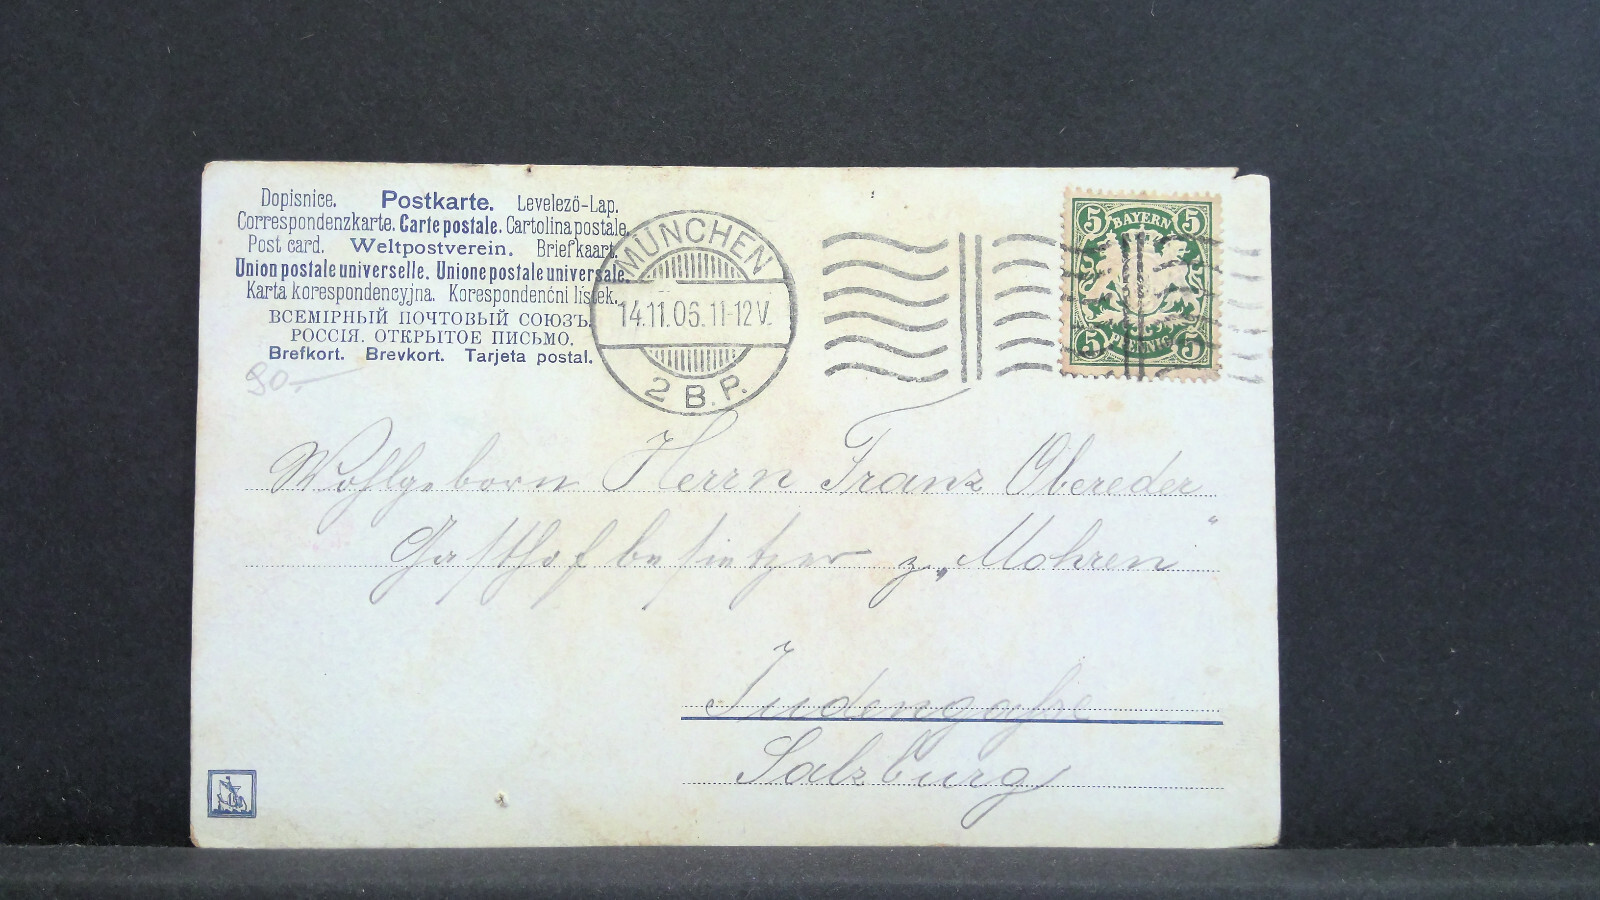 Dopisnice. Postkarte. Levelező-Lap.
Correspondenzkarte. Carte postale. Cartolina postale.
Post card. Weltpostverein. Briefkaart.
Union postale universelle. Unione postale universale.
Karta korespondencyjna. Korespondenční lístek.
ВСЕМІРНЫЙ ПОЧТОВЫЙ СОЮЗЪ.
РОССІЯ. ОТКРЫТОЕ ПИСЬМО.
Brefkort. Brevkort. Tarjeta postal.
90.—
MÜNCHEN
14.11.06.11-12V.
2 B.P.
5 BAYERN 5
5 PFENNIG 5
Wohlgeborn Herrn Franz Obereder
Gasthofbesietzer z. „Mohren"
Judengaße
Salzburg